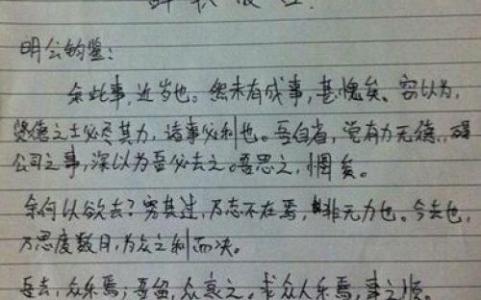 辞职报告:
明公钧鉴:
余此事,近岁也。然未有成事,甚愧矣。窃以为,
贤德之士必尽其力,诸事必利也。吾自省,觉有力无德,
公司之事,深以为吾必去之。吾思之,惆矣。
余何以欲去?穷其过,乃志不在焉,非无力也。今去也,
乃思度数月,为众之利而决。
吾去,众乐焉;吾留,众哀之。求众人乐焉,事之顺